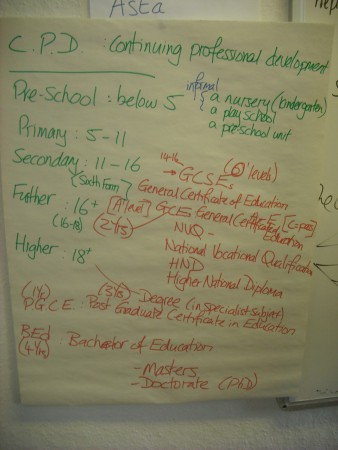 Asta
C.P.D. : continuing professional development
Pre-School : below 5
informal
a nursery (kindergarten)
a play school
a pre-school unit
Primary : 5 - 11
Secondary : 11 - 16
14-16
GCSEs ('O' levels)
General Certificate of Education
{Sixth Form}
Further : 16+ [A'level]
(16-18)
(2yrs)
GCEs General Certificate of Education
[Cs pass]
NVQ -
National Vocational Qualification
HND
Higher National Diploma
Higher : 18+
(3yrs) - Degree (in specialist subject)
(1yr)
P.G.C.E : Post Graduate Certificate in Education
BEd : Bachelor of Education
(4yrs)
- Masters
- Doctorate (PhD)